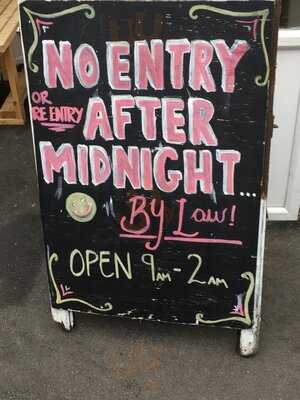 NO ENTRY
OR
RE ENTRY
AFTER
MIDNIGHT...
By Law!
OPEN 9AM - 2AM